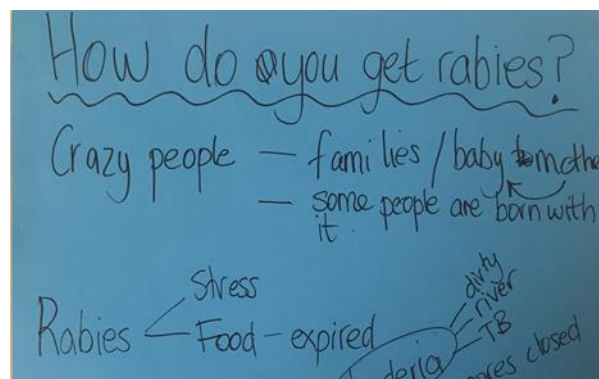 How do you get rabies?
Crazy people — families / baby to mothe
— some people are born with
it.
Stress
Rabies
Food - expired
dirty
river
TB
closed